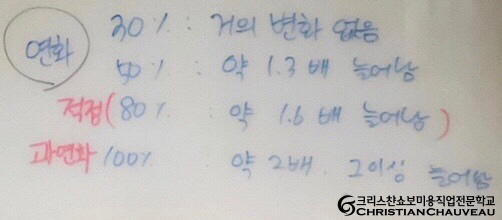 연화 30% : 거의 변화 없음
50% : 약 1.3배 늘어남
적정(80% : 약 1.6배 늘어남)
과연화 100% 약 2배. 그이상 늘어남
크리스찬쇼보미용직업전문학교
CHRISTIANCHAUVEAU